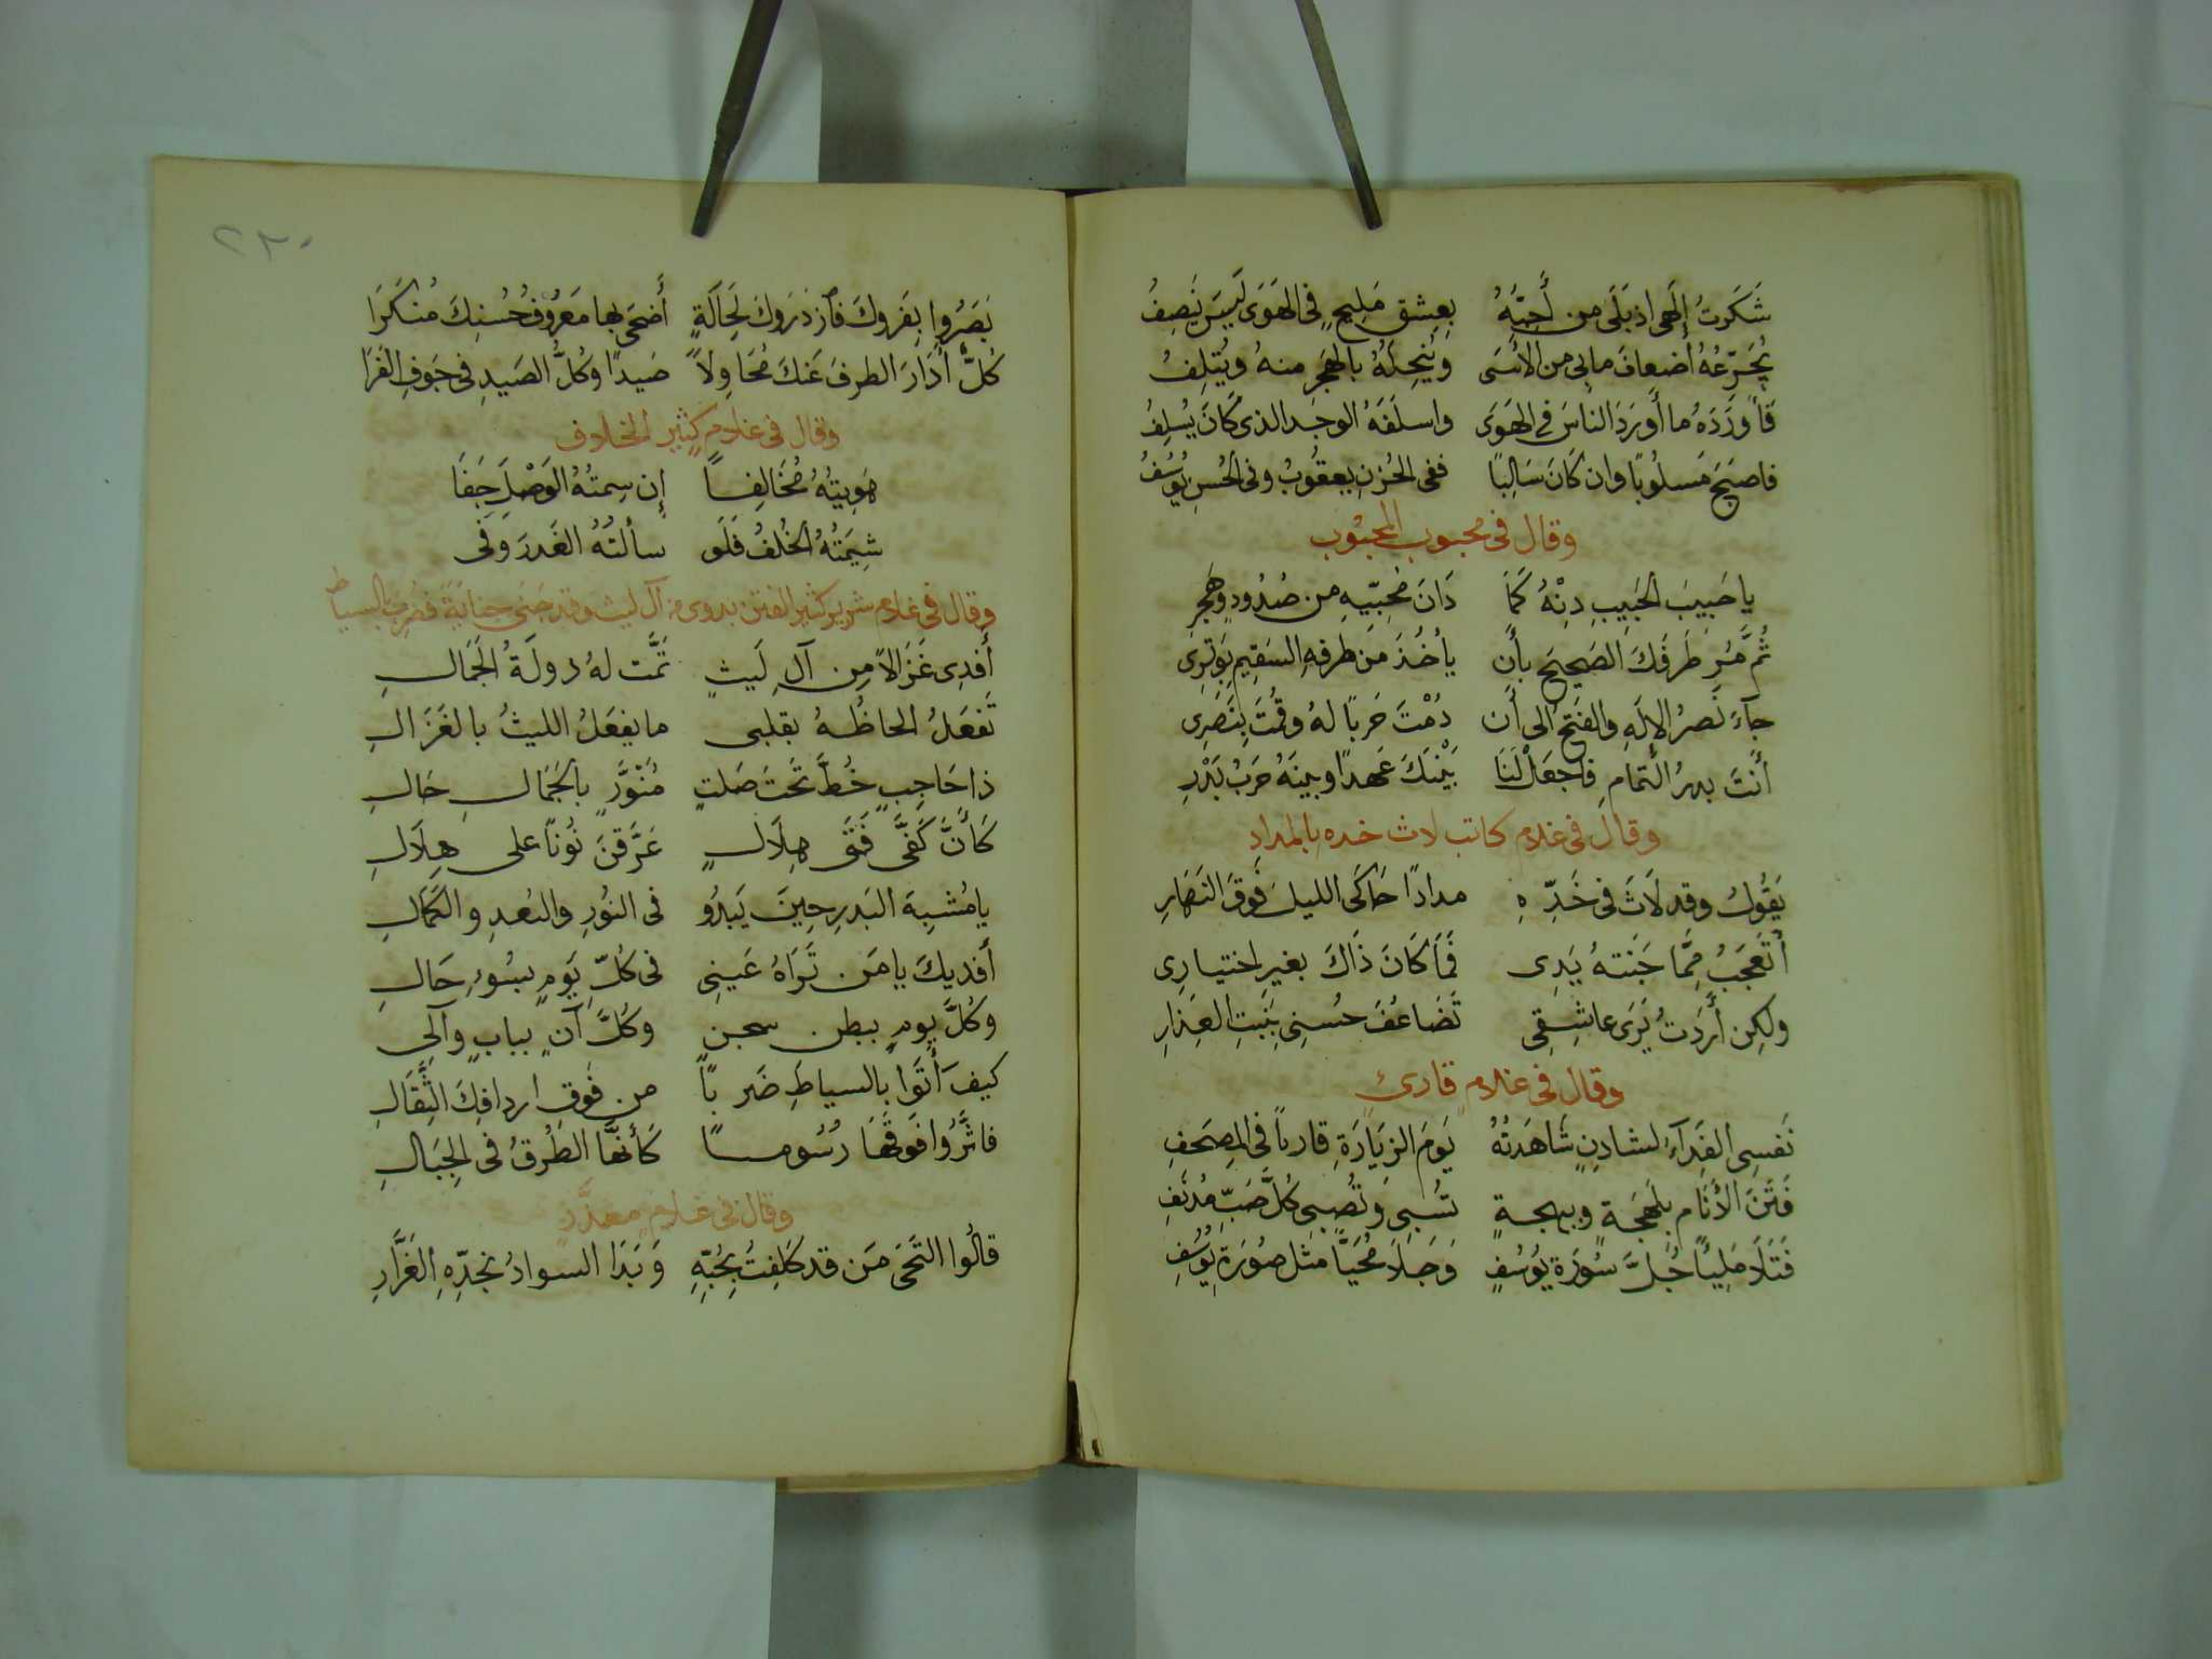 شَكَرتُ إلَهى اذ بَلَى من أُحِبُّهُ بعِشقِ مَلِيحٍ فى الهَوَى لَيسَ يُنصِفُ
يُجَرِّعُهُ أضعافَ مابى من الأسَى وَيُنحِلُهُ بالهَجرِ منهُ ويُتلِفُ
فَأَورَدَهُ ما أَورَدَ الناسَ فى الهَوَى واسلَفَهُ الوجد الذى كَانَ يُسلِفُ
فاصبَحَ مَسلُوبًا وان كَانَ سَالِبًا ففى الحُزنِ يعقُوبُ وفى الحُسنِ يُوسُفُ
وقال فى محبوب المحبُوب
يا حَبِيبَ الحَبِيبِ دِنْهُ كَمَا دَانَ مُحِبّيهِ من صُدُودٍ وهَجرِ
ثُمَّ مُر طَرفَكَ الصَحِيحَ بأن يأخُذَ من طرفهِ السَقِيمِ بِوَترِى
جآءَ نَصرُ الإلَهِ والفَتحُ الى أن دُمْتَ حَربًا لهُ وقُمتَ بِنَصرِى
أنتَ بدرُ التمامِ فاجعَلْ لَنَا بَيْنَكَ عَهدًا وبينَهُ حَربُ بَدْرِ
وقال فى غلام كاتب لاث خده بالمداد
يَقُولُ وقد لَاثَ فى خَدِّهِ مدادًا حَاكَى الليلَ فَوقَ النَهَارِ
أتَعجَبُ مِمَّا جَنَتهُ يَدِى فَمَا كَانَ ذَاكَ بغيرِ اختيارِى
ولكِن أَرَدتُ يَرَى عاشِقِى تَضَاعُفَ حُسنِى بِنَبتِ العِذارِ
وقال فى غلامٍ قارئ
نَفسِى الفِدَآءُ لشادنٍ شَاهَدتُهُ يَومَ الزيَارَةِ قارئاً فى المصحَفِ
فَتَنَ الأنَام بلَهجَةٍ وببهجةٍ تُسبِى وَتُصبِى كُلَّ صَبٍّ مُدنَفِ
فَتَلَا مَلِيّاً جُلَّ سُورَةِ يُوسُفٍ وَجَلَا مُحَيًّا مثل صُورَةِ يُوسُفِ
٢٣٠
بَصَرُوا بِفَروكَ فآزدَرَوكَ لِحَالَةٍ أَضحَى بها مَعرُوفُ حُسنِكَ مُنكَرَا
كُلٌّ أَدَارَ الطرفَ عَنكَ مُحَاوِلاً صَيدًا وكُلُّ الصَيدِ فى جَوفِ الفَرَا
وقال فى غلامٍ كثير الخلاف
هَوِيتُهُ مُخَالِفًا إن سِمتُهُ الوَصْلَ جَفَا
شِيمَتُهُ الخُلفُ فَلَو سألتُهُ الغَدرَ وَفَى
وقال فى غلام شرير كثير الفتن بدوى من آل ليث وقد جنى جناية فضرب بالسياط
أَفدِى غَزَالاً مِن آلِ لَيثٍ تَمَّت لهُ دولَةُ الجَمَالِ
تَفعَلُ الحاظُهُ بقلبى ما يفعَلُ الليثُ بالغَزَالِ
ذا حَاجِبٍ خُطَّ تَحتَ صَلتٍ مُنَوَّرٍ بالجَمَالِ حَالِ
كَأَنَّ كَفَّى فَتَى هِلَالٍ عَرَّقنَ نُونًا على هِلَالِ
يا مُشبِهَ البَدرِ حِينَ يَبدُو فى النُورِ والبُعدِ والكَمَالِ
أَفديكَ يا مَن تَرَاهُ عَينِى فى كُلِّ يَومٍ بسُوءِ حَالِ
وكُلَّ يومٍ ببطن سجن وكُلَّ آنٍ ببابِ وآلِى
كيفَ أَتَوا بالسياطِ ضَربًا من فَوقِ اردافِكَ الثِّقَالِ
فاثَّرُوا فَوقَهَا رُسُومًا كَأنهَّا الطُرقُ فى الجِبَالِ
وقال فى غلامٍ معذّر
قالُوا التَحَى مَن قد كَلِفتُ بحُبِّهِ وَبَدَا السوادُ بخَدِّهِ الغَرَّارِ